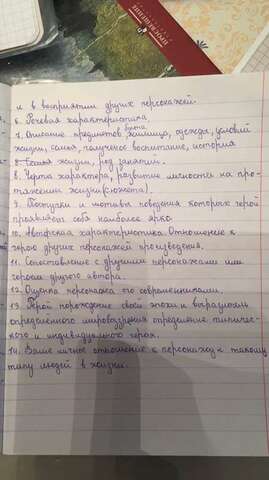 и в восприятии других персонажей.
6. Речевая характеристика.
быта
7. Описание предметов жилища, одежды, условий
жизни, семья, полученное воспитание, история
жизни, род занятий.
8. Черта характера, развитие личности на про-
тяжении жизни (сюжета).
9. Поступки и мотивы поведения которых герой
проявил себя наиболее ярко.
10. Авторская характеристика. Отношение к
герою других персонажей произведения.
11. Сопоставление с другими персонажами или
героем другого автора.
12. Оценка персонажа его современниками.
13. Герой порождение своей эпохи и выразитель
определённого мировоззрения определение типичес-
кого и индивидуального героя.
14. Ваше личное отношение к персонажу и такому
типу людей в жизни.